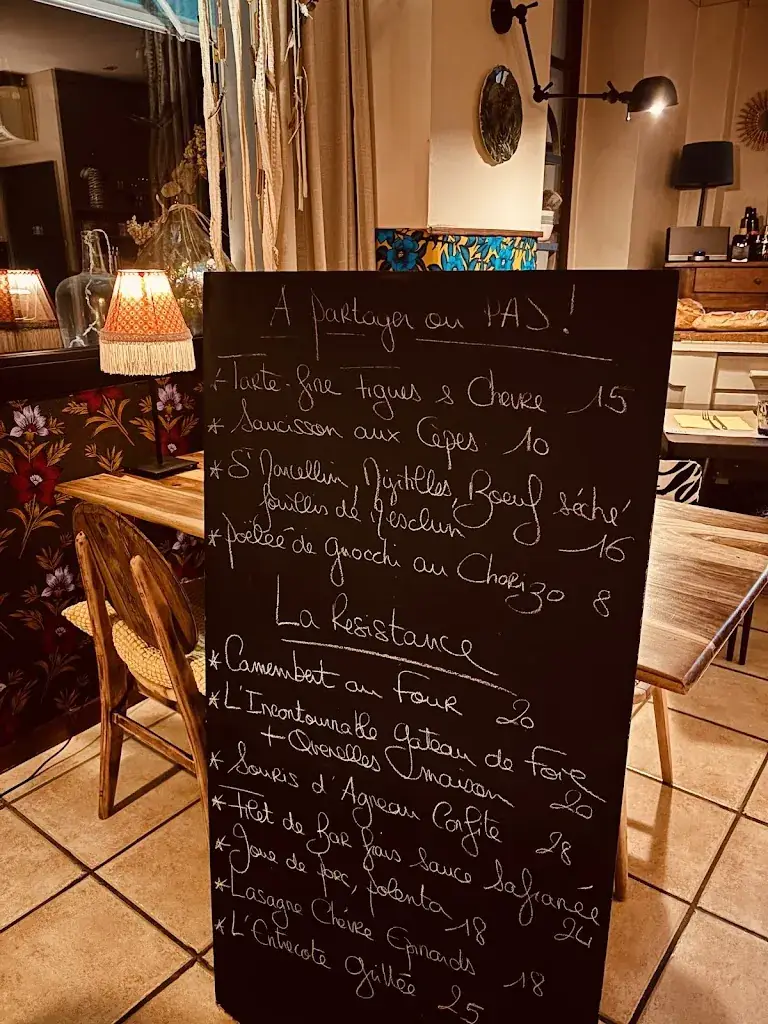 A partager ou PAS !
* Tarte fine Figues & Chèvre 15
* Saucisson aux Cèpes 10
* St Marcellin, Myrtilles, Boeuf séché
fouillis de Mesclun 16
* Poêlée de gnocchi au Chorizo 8
La Resistance
* Camembert au Four 20
* L'Incontournable gateau de Foie
+ Quenelles maison 20
* Souris d'Agneau Confite 28
* Filet de Bar frais sauce Safranée 24
* Joue de porc, polenta 18
* Lasagne Chèvre Epinards 18
* L'Entrecote Grillée 25